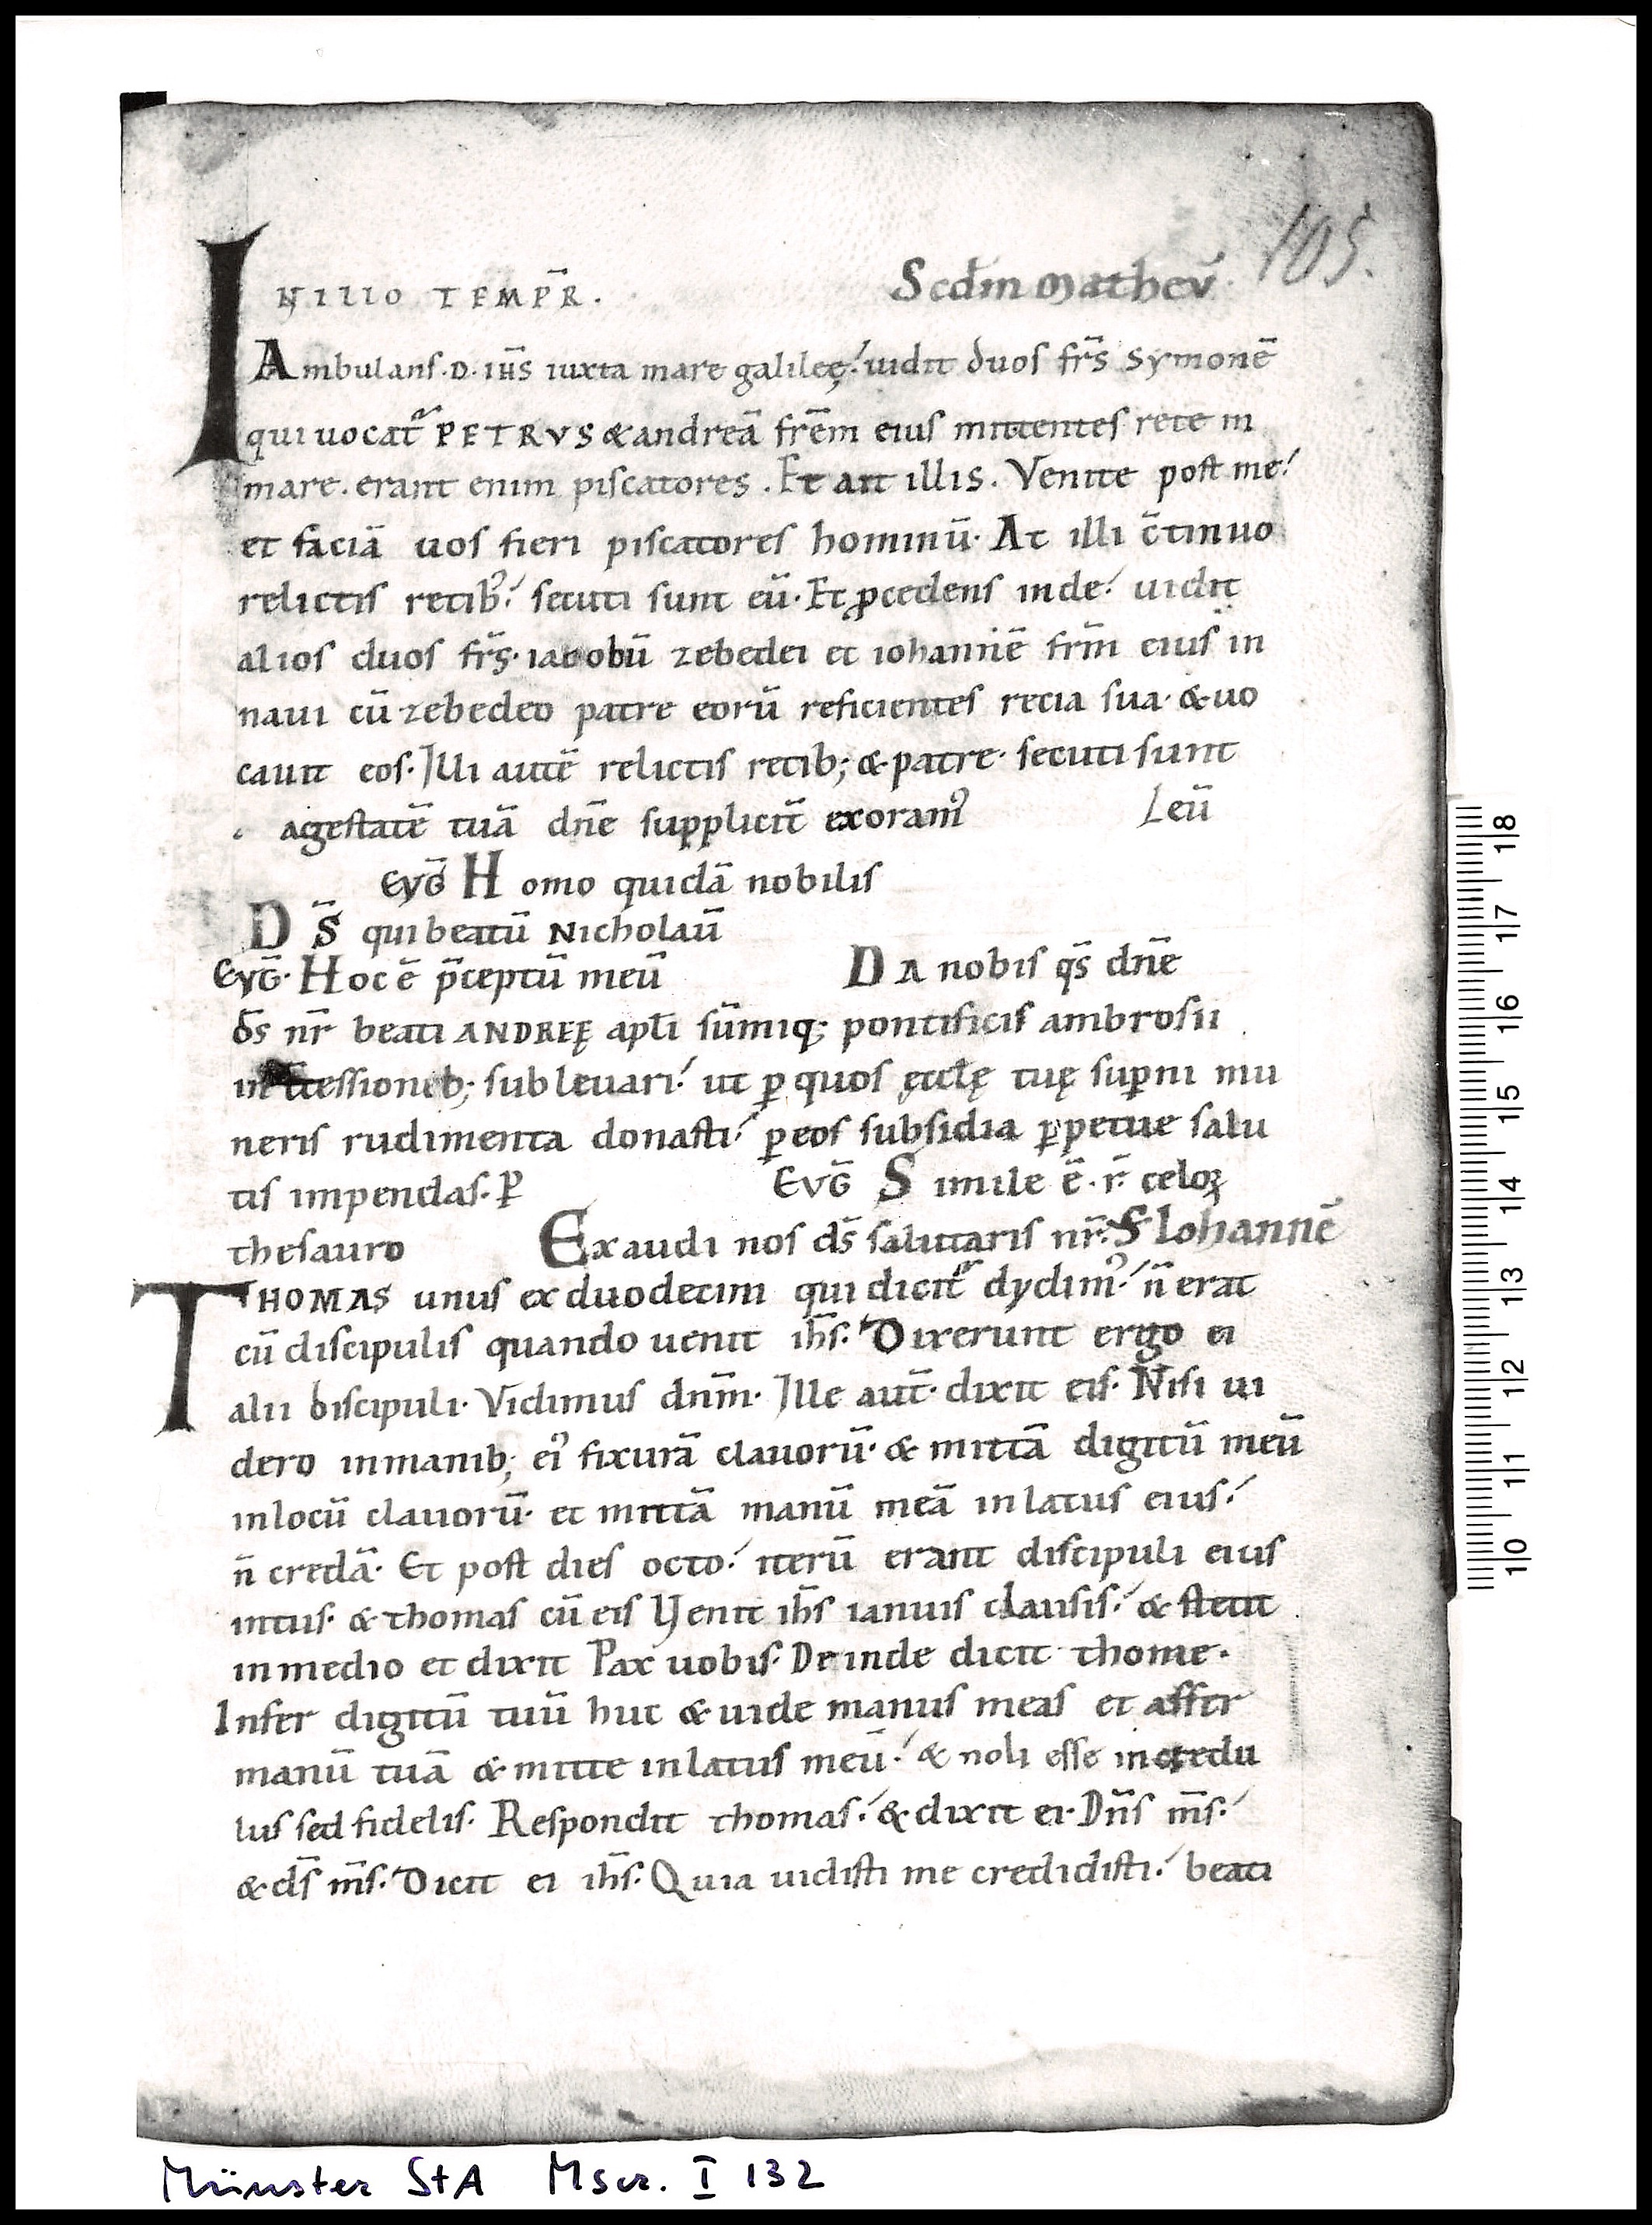 105.
Scdm Matheū
IN ILLO TEMPR̄.
Ambulans. D. IHS̄ iuxta mare galileę! uidit duos fr̄s symonē
qui uocat᷑ PETRVS & andreā fr̄em eius mittentes rete in
mare. erant enim piscatores. Et ait illis. Venite post me!
et faciā uos fieri piscatores hominū. At illi c̄tinuo
relictis retib᾿! secuti sunt eū. Et ꝓcedens inde! uidit
alios duos fr̄s. iacobū zebedei et iohannē fr̄m eius in
naui cū zebedeo patre eorū reficientes recia sua. & uo
cauit eos. Illi autē relictis retib; & patre. secuti sunt
agestatē tuā dn̄e supplicit̄ exoram᾿ Leū
EVḠ Homo quidā nobilis
DS̄ qui beatū Nicholaū
EVḠ. Hoc ē p̄ceptū meū DA nobis q̄s dn̄e
ds̄ nr̄ beati ANDREĘ apl̄i sūmiq; pontificis ambrosii
int̄cessionib; subleuari! ut ꝑ quos ęccłę tuę suꝑni mu
neris rudimenta donasti! ꝑ eos subsidia ꝑpetue salu
tis impendas. P̄ EVḠ Simile ē. r̄. celoꝝ
thesauro Exaudi nos ds̄ salutaris nr̄. S Iohannē
THOMAS unus ex duodecim qui dicit᷑ dydim᾿! n̄ erat
cū discipulis quando uenit ih̄s. Dixerunt ergo ei
alii discipuli. Vidimus dn̄m. Ille aut̄. dixit eis. Nisi ui
dero in manib; ei᾿ fixurā clauorū. & mittā digitū meū
in locū clauorū. et mittā manū meā in latus eius!
n̄ credā. Et post dies octo! iterū erant discipuli eius
intus. & thomas cū eis Venit ih̄s ianuis clausis! & stetit
in medio et dixit Pax uobis. Deinde dicit thome.
Infer digitū tuū huc & uide manus meas et affer
manū tuā & mitte in latus meū! & noli esse incredu
lus sed fidelis. Respondit thomas! & dixit ei. Dn̄s m̄s!
& ds̄ m̄s. Dicit ei ih̄s. Quia uidisti me credidisti! beati
18
17
16
15
14
13
12
11
10
Münster StA Mscr. I 132